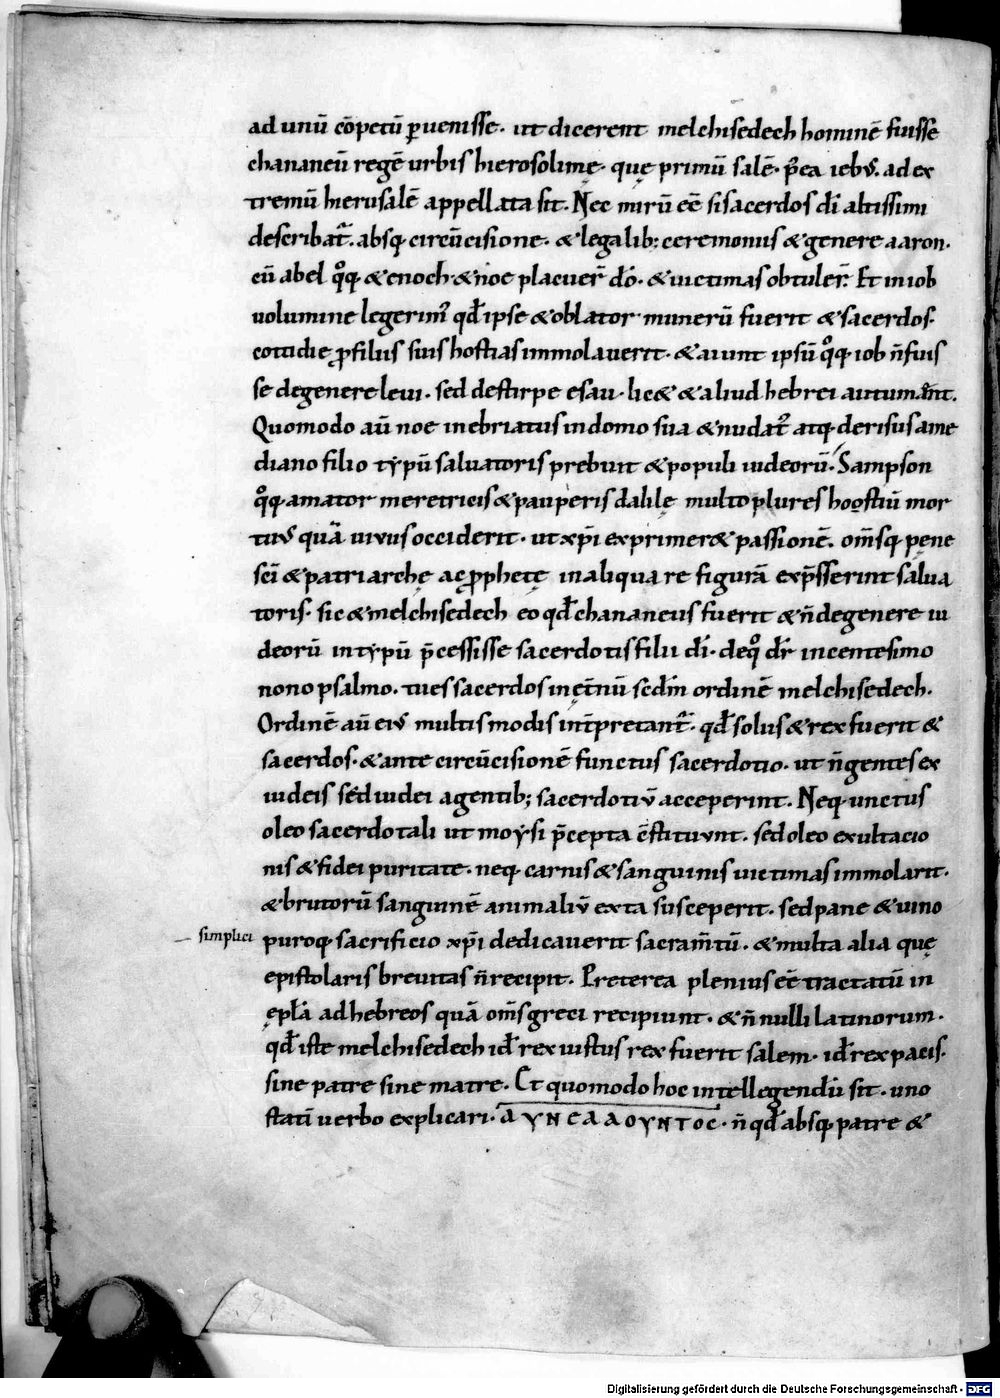 ad unū cōpetū ꝑuenisse· ut dicerent melchisedech hominē fuisse
chananeū regē urbis hierosolimę· quę primū salē· p̄ea iebus· ad ex
tremū hierusalē appellata sit· Nec mirū eē si sacerdos di altissimi
describat᷑· absq; circūcisione· & legalib; cerimoniis & genere aaron·
cū abel qͦq; & enoch & noe placuer̄ dō· & uictimas obtuler̄· Et in iob
uolumine legerim᷒ qđ ipse & oblator munerū fuerit & sacerdos·
cotidie ꝓ filiis suis hostias immolauerit· & aiunt ipsū qͦq; iob n̄ fuis
se de genere leui· sed de stirpe esau· lic& & aliud hebrei autumānt·
Quomodo aū noe inebriatus in domo sua & nudat᷒ atq; derisus a me
diano filio typū saluatoris prebuit & populi iudeorū· Sampson
qͦq; amator meretricis & pauperis dalilę multo plures hoostiū mor
tuus quā uiuus occiderit· ut xp̄i exprimer& passionē· om̄sq; pene
sci & patriarchę ac ꝓphetę in aliqua re figurā exp̄sserint salua
toris· sic & melchisedech eo qđ chananeus fuerit & n̄ de genere iu
deorū in typū p̄cessisse sacerdotis filii dī· de qͦ dr̄ in centesimo
nono psalmo· tu es sacerdos in ęt̄nū scdm ordinē melchisedech·
Ordinē aū eius multis modis int̄pretant᷑· qđ solus & rex fuerit &
sacerdos· & ante circūcisionē functus sacerdotio· ut n̄ gentes ex
iudeis sed iudei a gentib; sacerdotiū acceperint· Neq; unctus
oleo sacerdotali ut moysi p̄cepta c̄stituunt· sed oleo exultacio
nis & fidei puritate· neq; carnis & sanguinis uictimas immolarit·
& brutorū sanguinē animaliū exta susceperit· sed pane & uino
simplici
puroq; sacrificio xp̄i dedicauerit sacram̄tū· & multa alia quę
epistolaris breuitas n̄ recipit· Preterea plenius eē tractatū in
ępła ad hebreos quā om̄s greci recipiunt· & n̄nulli latinorum·
qđ iste melchisedech id̄ rex iustus rex fuerit salem· id̄ rex pacis·
sine patre sine matre· Et quomodo hoc intellegendū sit· uno
statī uerbo explicari· n̄ qđ absq; patre &
Digitalisierung gefördert durch die Deutsche Forschungsgemeinschaft - DFG